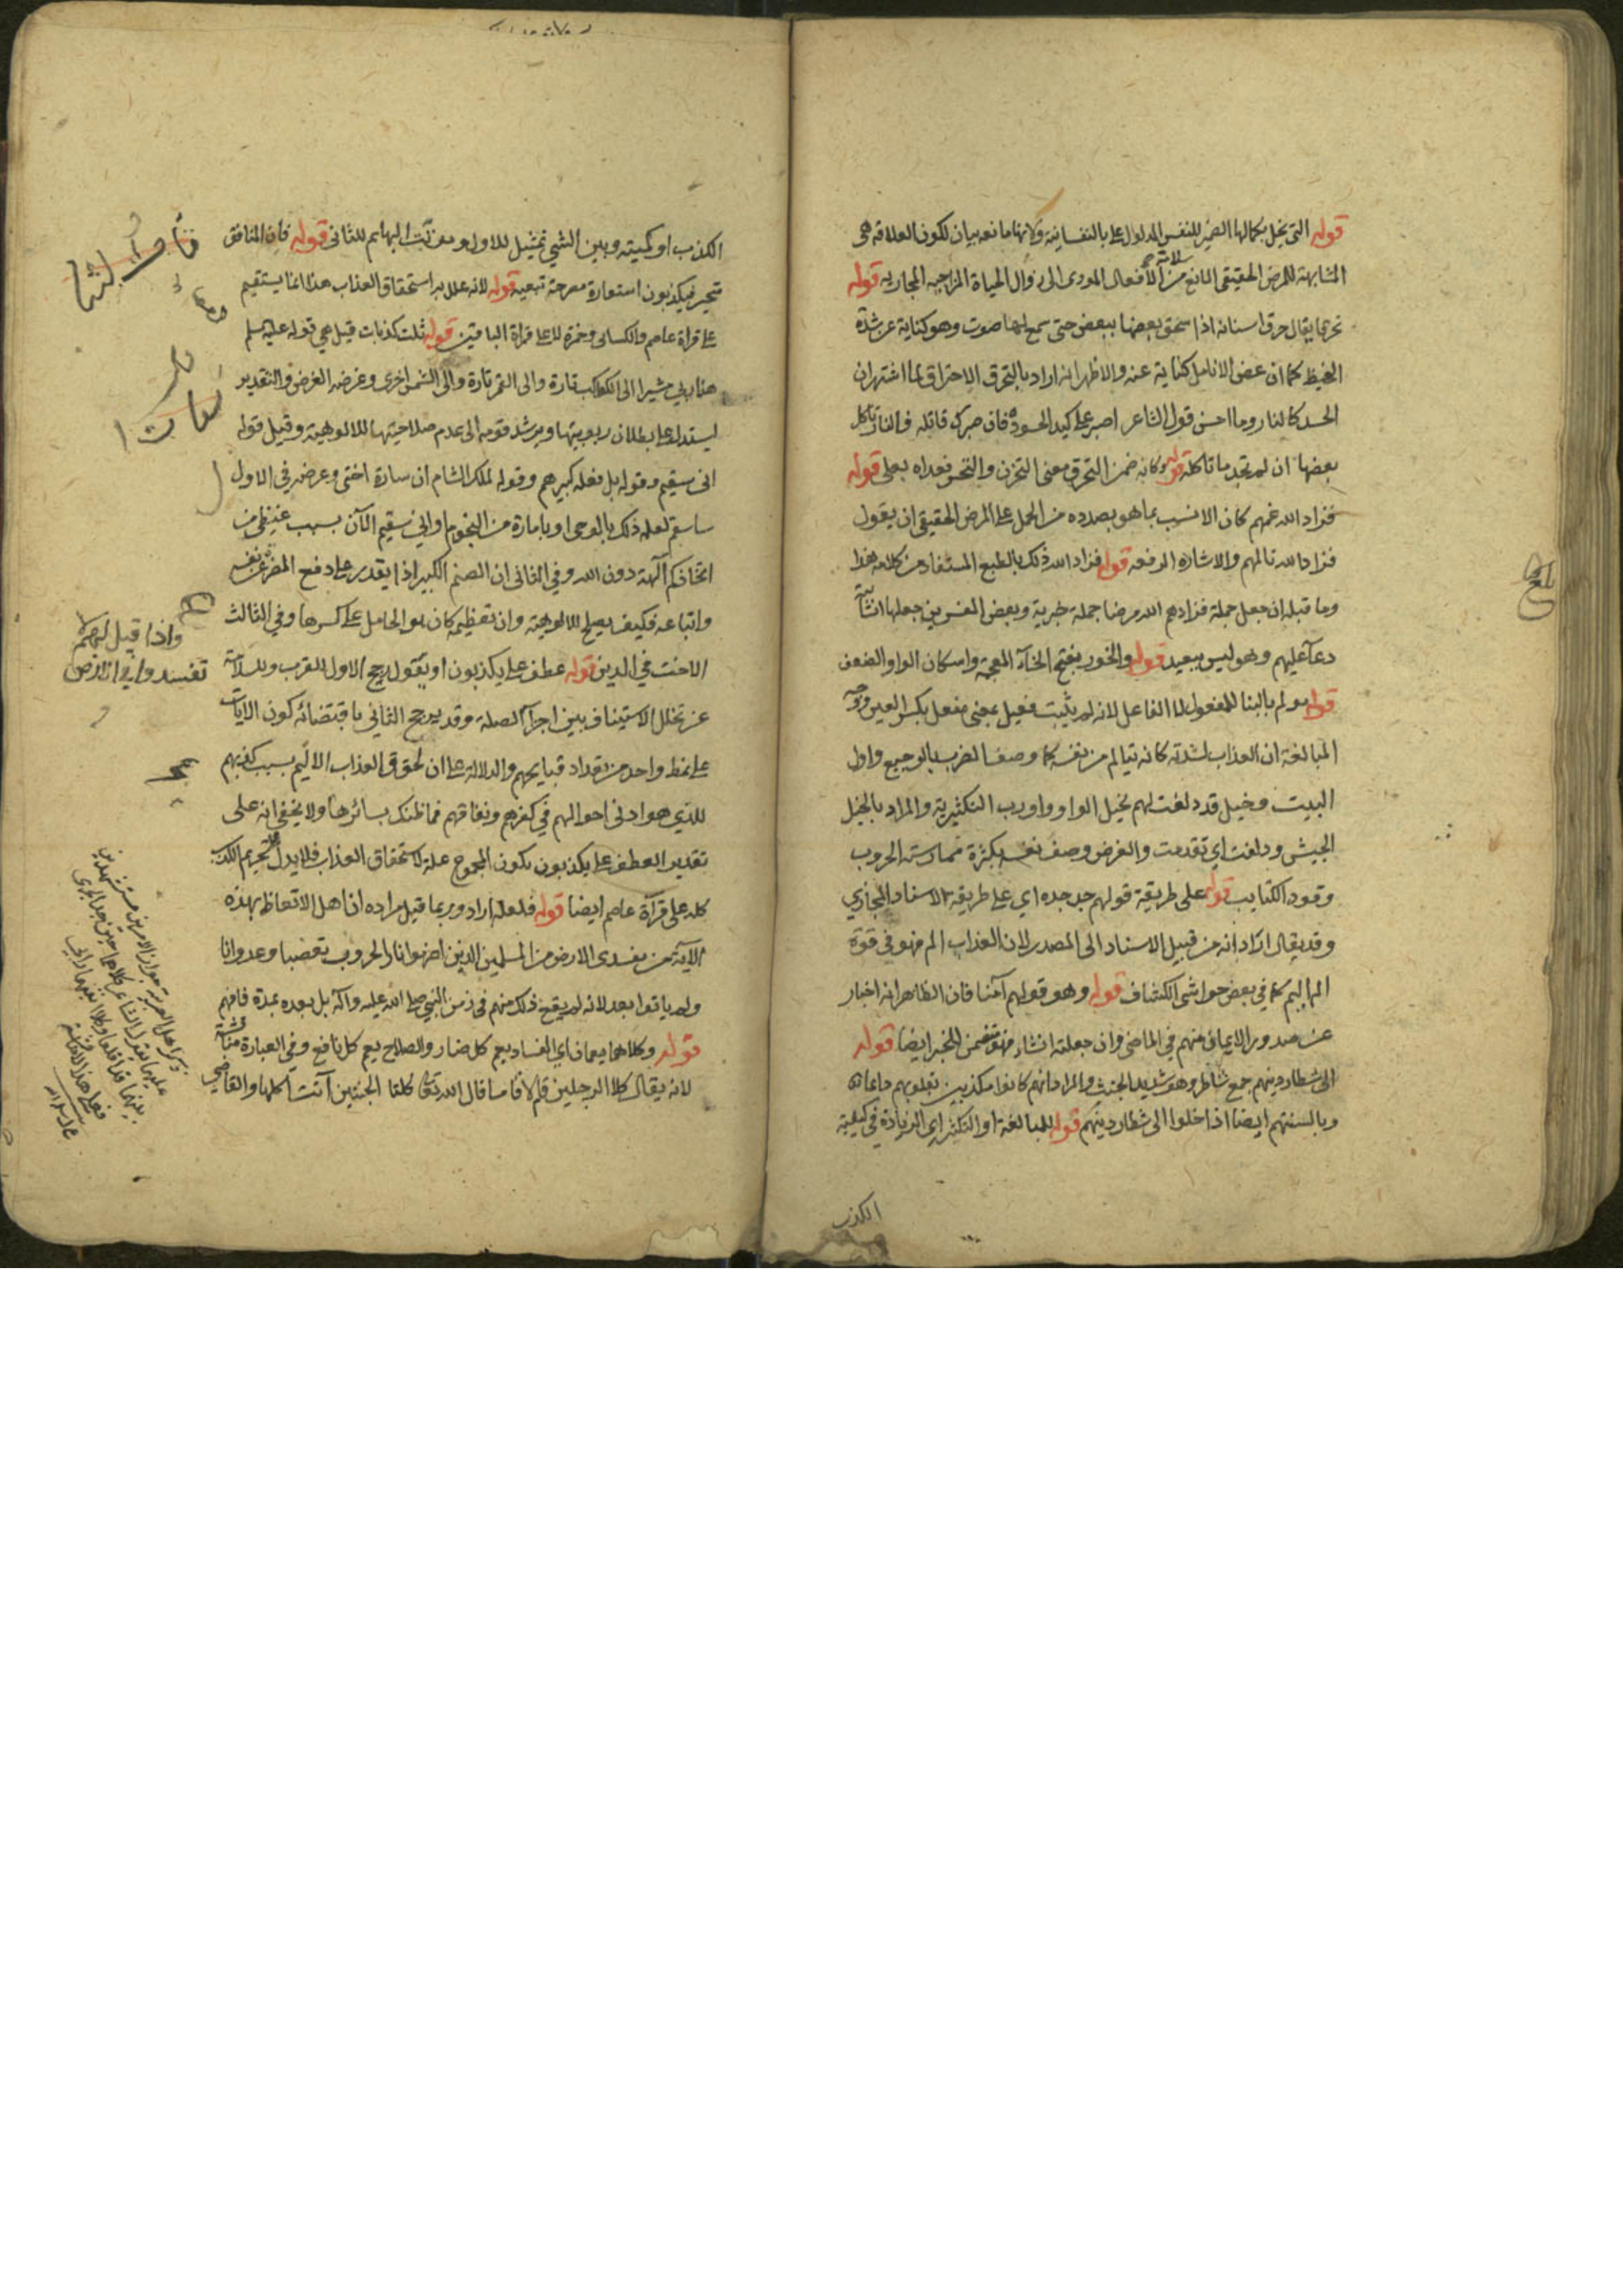 قوله التي تخل بكمالها الضمير للنفس المدلول عليها بالنفسانية ولانها مانعه بيان لكون العلاقة هي
المشابهة للمرض الحقيقي المانع من سلامة الافعال المودي الى زوال الحياة المزاجيه المجازيه قوله
تحرقا يقال حرق اسنانه اذا سحق بعضها ببعض حتى سمع لها صوت وهو كناية عن شدة
الغيظ كما ان عض الانامل كناية عنه والاظهر انه اراد بالتحرق الاحتراق لما اشتهر ان
الحسد كالنار وما احسن قول الشاعر اصبر على كيد الحسود فان صبرك قاتله فالنار تاكل
بعضها ان لم تجد ما تاكله قوله وكانه ضمن التحرق معنى التحزن والتحسر فعداه بعلى قوله
فزاد الله غمهم كان الانسب بما هو بصدده من الحمل على المرض الحقيقي ان يقول
فزاد الله تالمهم والاشارة الرفعه قوله فزاد الله ذلك بالطبع المستفاد من كلامه هذا
وما قبله ان جعل جملة فزادهم الله مرضا جملة خبرية وبعض المفسرين جعلها انشائية
دعاء عليهم وهو ليس ببعيد قوله والخور بفتح الخاء المعجمة واسكان الواو الضعف
قوله مولم بالبنا للمفعول لا الفاعل لانه لم يثبت فعيل بمعنى مفعل بكسر العين ووجه
المبالغة ان العذاب لشدته كانه يتالم من نفسه كما وصف الضرب بالوجيع واول
البيت وخيل قد دلفت لهم بخيل الواو واو رب التكثيرية والمراد بالخيل
الجيش ودلفت اي تقدمت والغرض وصف نفسه بكثرة ممارسته الحروب
وقود الكتايب قوله على طريقة قولهم جد جده اي على طريقة الاسناد المجازي
وقد يقال اراد انه من قبيل الاسناد الى المصدر لان العذاب الم فهو في قوة
الم اليم كما في بعض حواشي الكشاف قوله وهو قولهم آمنا فان الظاهر انه اخبار
عن صدور الايمان منهم في الماضي وان جعلته انشاء فهو متضمن للخبر ايضا قوله
الى شطار دينهم جمع شاطر وهو شديد الخبث والمراد انهم كانوا مكذبين بقلوبهم دايما
وبالسنتهم ايضا اذا خلوا الى شطار دينهم قوله للمبالغة او التكثير اي الزيادة في كيفية
الكذب
بلغ
الكذب او كميته وبين الشي تمثيل للاول وموتت البهايم للثاني قوله فان المنافق
متحير فيكذبون استعارة مصرحة تبعية قوله لانه علل به استحقاق العذاب هذا انما يستقيم
على قراة عاصم والكسائي وحمزة لا على قراة الباقين قوله ثلث كذبات قيل هي قوله عليه السلم
هذا ربي مشيرا الى الكواكب تارة والى القمر تارة والى الشمس اخرى وغرضه الفرض والتقدير
ليستدل على بطلان ربوبيتها ويرشد قومه الى عدم صلاحيتها للالوهية وقيل قوله
اني سقيم وقوله بل فعله كبيرهم وقوله لملك الشام ان سارة اختي وغرضه في الاول
ساسقم لعلمه ذلك بالوحي او بامارة من النجوم او اني سقيم الآن بسبب غيظي من
اتخاذكم آلهة دون الله وفي الثاني ان الصنم الكبير اذا لم يقدر على دفع المضرة عن نفسه
واتباعه فكيف يصلح للالوهية وان تعظيمه كان هو الحامل على كسرها وفي الثالث
الاخت في الدين قوله عطف على يكذبون او يقول يرجح الاول للقرب وللسلامة
عن تخلل الاستيناف بين اجزآ الصلة وقد يرجح الثاني باقتضائه كون الايات
على نمط واحد من تعداد قبايحهم والدلالة على ان لحوق العذاب الاليم بسبب كذبهم
الذي هو ادنى احوالهم في كفرهم ونفاقهم فما ظنك بسائرها ولا يخفى انه على
تقدير العطف على يكذبون يكون المجموع علة لاستحقاق العذاب فلا يدل على تحريم الكذب
كله على قرآة عاصم ايضا قوله فلعله اراد وربما قيل مراده ان اهل الاتعاظ بهذه
الآية من مفسدي الارض من المسلمين الذين اضرموا نار الحروب تعصبا وعدوانا
ولم ياتوا بعد لانه لم يقع ذلك منهم في زمن النبي صلى الله عليه وآله بل بعده بمدة فافهم
قوله وكلاهما يعمان اي الفساد يعم كل ضار والصلاح يعم كل نافع وفي العبارة مناقشة
لانه يقال كلا الرجلين قام لا قاما قال الله تعالى كلتا الجنتين آتت اكلها والقاضي
واذا قيل لهم لا
تفسدوا في الارض